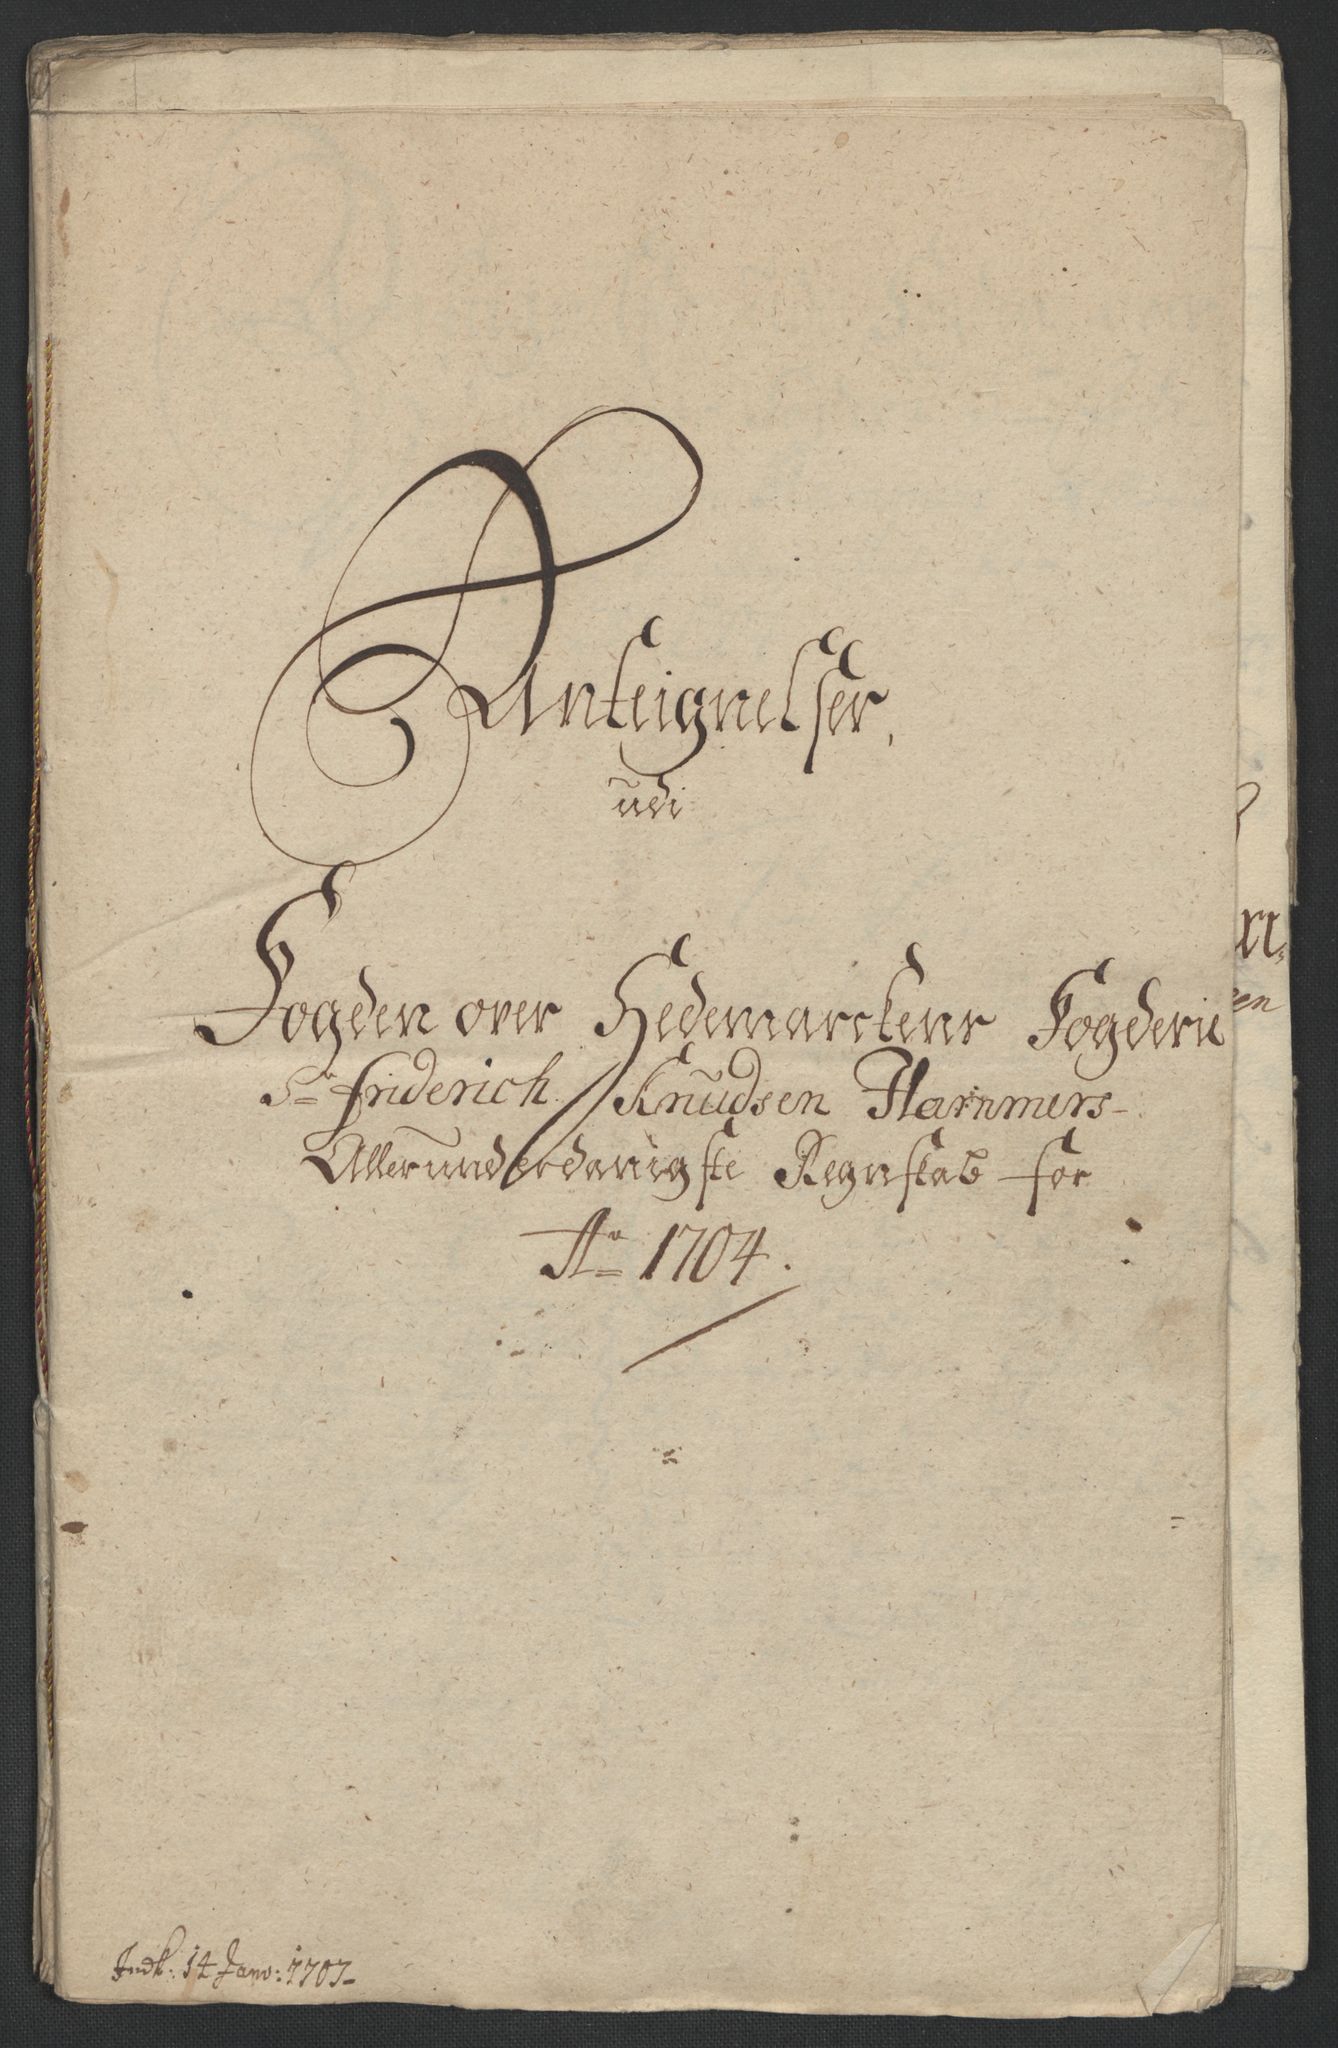 Anteignelser,
udi
Fogden over Hedemarckens Fogderie
Sr. friderich Knudsen Hammers
Allerunderdanigste Regnskab for
Ao 1704.
Indk: 14 Janv: 1707
en